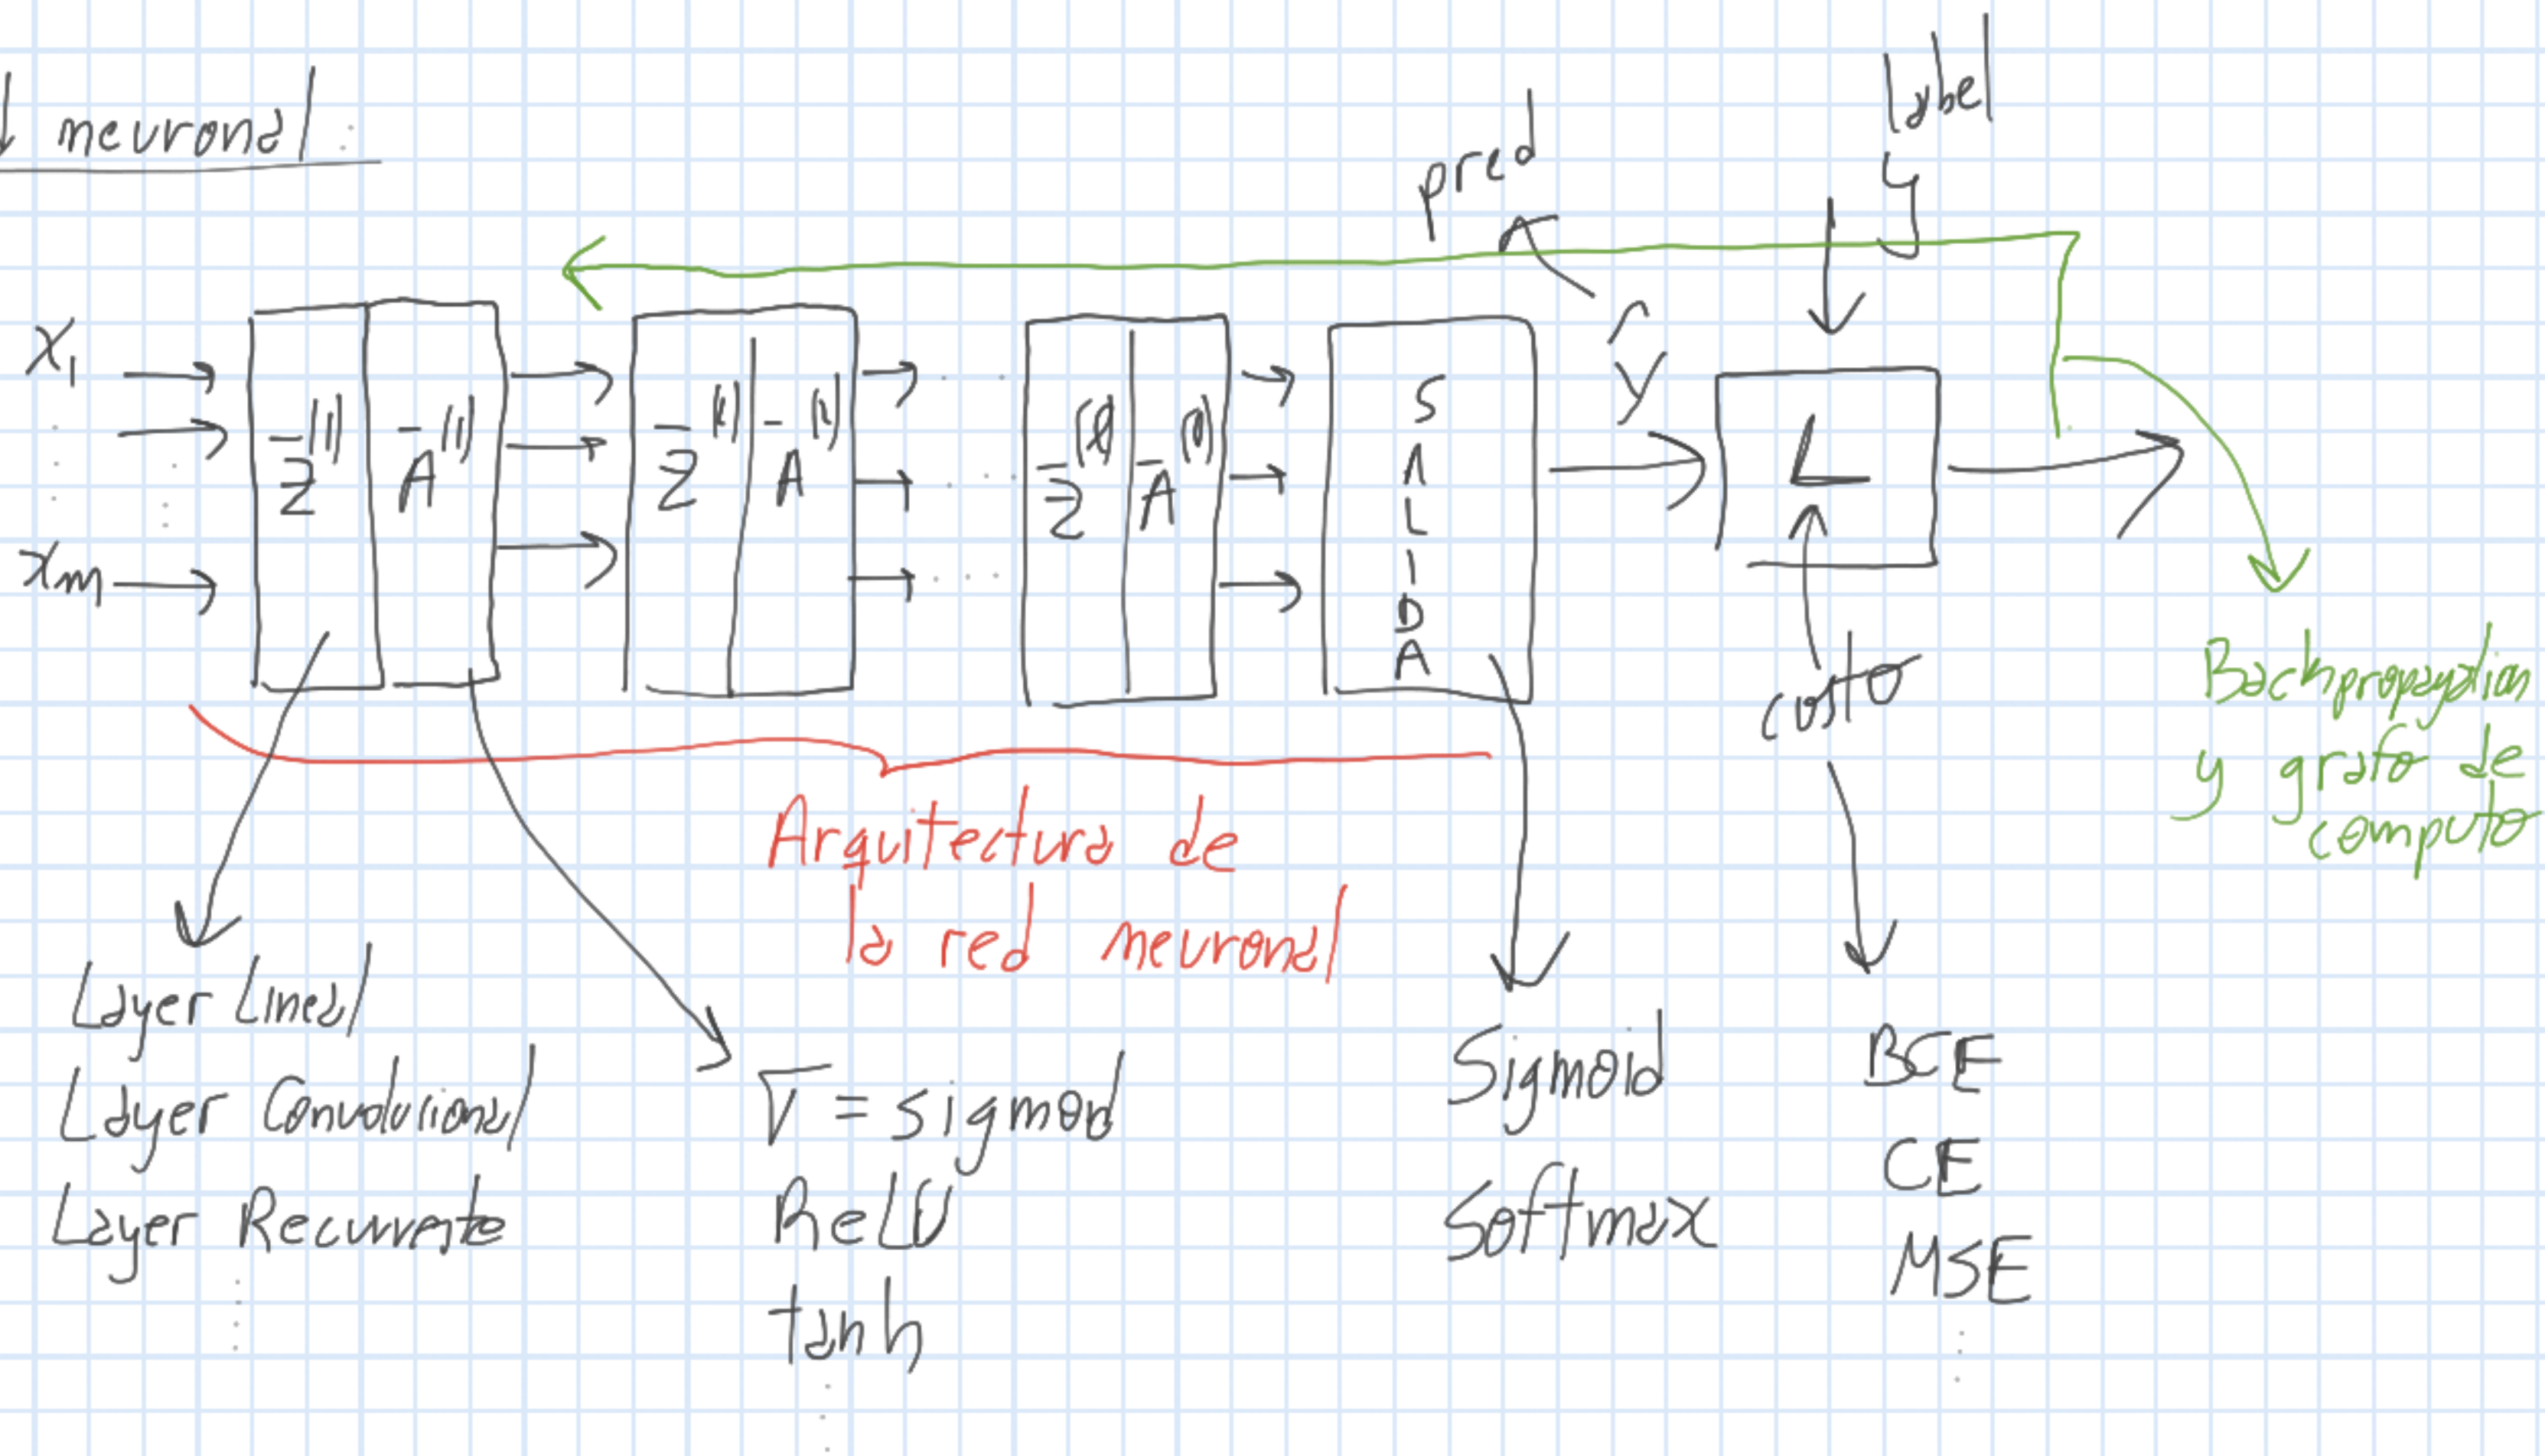 neuronal :
label
y
pred
ŷ
X1
xm
Z̄(1) Ā(1)
Z̄ Ā
Z̄(l) Ā(l)
SALIDA
L
costo
Backpropagation
y grafo de
computo
Arquitectura de
la red neuronal
Layer Lineal
Layer Convolucional
Layer Recurrente
σ = sigmod
ReLU
tanh
Sigmoid
Softmax
BCE
CE
MSE